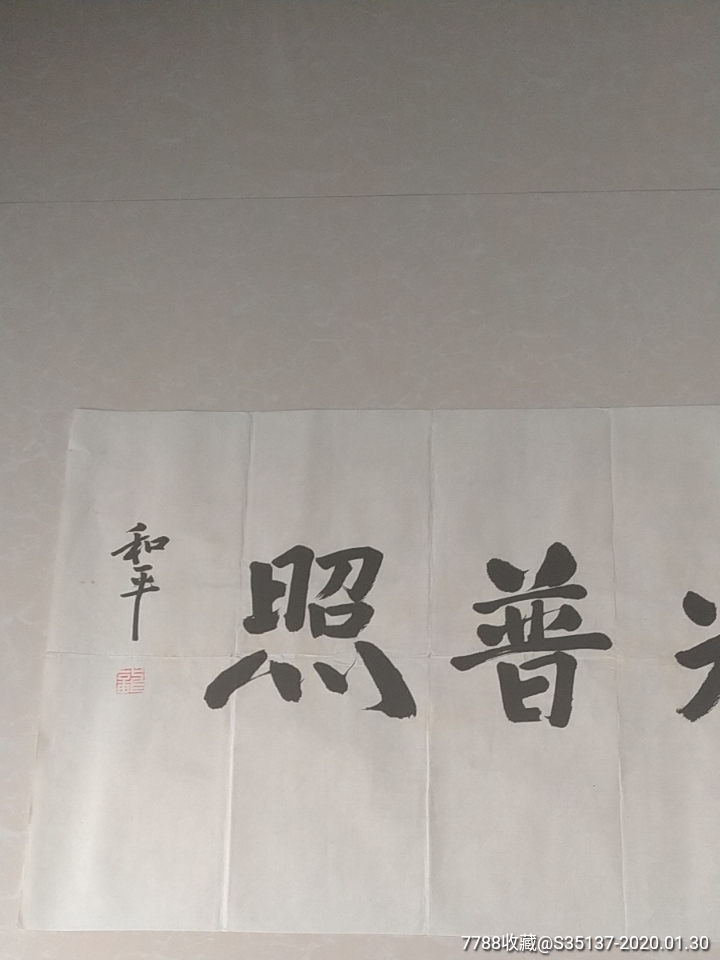 普照
和平
7788收藏@S35137-2020.01.30